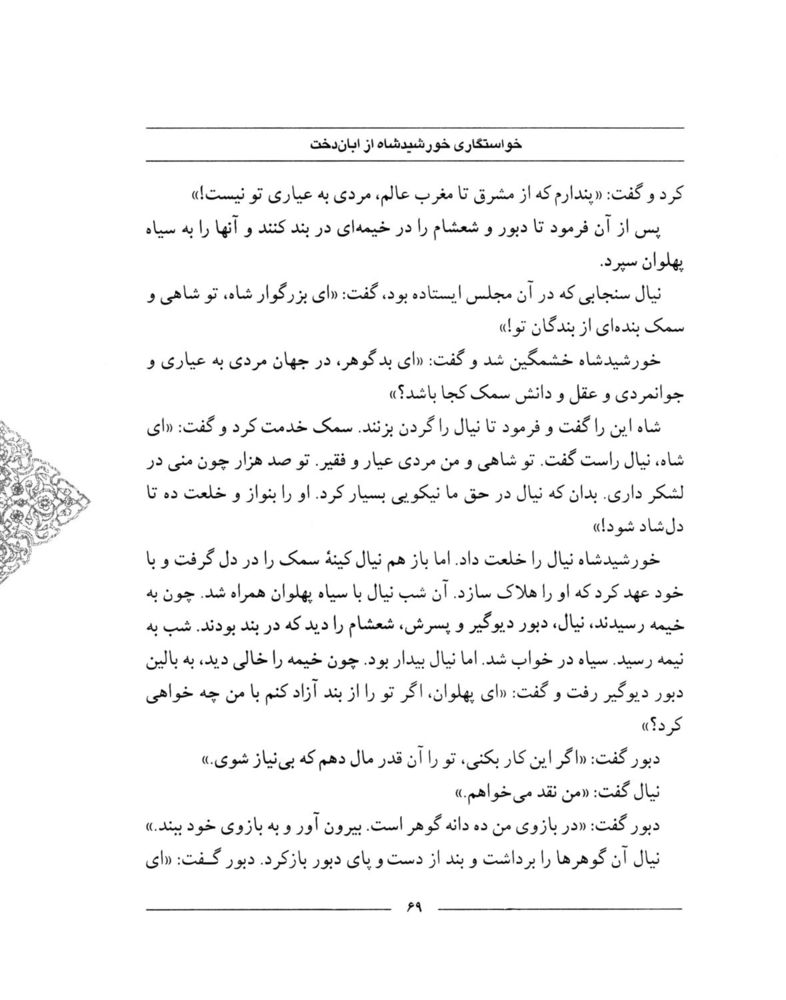 خواستگاری خورشیدشاه از ابان‌دخت
کرد و گفت: «پندارم که از مشرق تا مغرب عالم، مردی به عیاری تو نیست!»
پس از آن فرمود تا دبور و شعشام را در خیمه‌ای در بند کنند و آنها را به سیاه
پهلوان سپرد.
نیال سنجابی که در آن مجلس ایستاده بود، گفت: «ای بزرگوار شاه، تو شاهی و
سمک بنده‌ای از بندگان تو!»
خورشیدشاه خشمگین شد و گفت: «ای بدگوهر، در جهان مردی به عیاری و
جوانمردی و عقل و دانش سمک کجا باشد؟»
شاه این را گفت و فرمود تا نیال را گردن بزنند. سمک خدمت کرد و گفت: «ای
شاه، نیال راست گفت. تو شاهی و من مردی عیار و فقیر. تو صد هزار چون منی در
لشکر داری. بدان که نیال در حق ما نیکویی بسیار کرد. او را بنواز و خلعت ده تا
دل‌شاد شود!»
خورشیدشاه نیال را خلعت داد. اما باز هم نیال کینهٔ سمک را در دل گرفت و با
خود عهد کرد که او را هلاک سازد. آن شب نیال با سیاه پهلوان همراه شد. چون به
خیمه رسیدند، نیال، دبور دیوگیر و پسرش، شعشام را دید که در بند بودند. شب به
نیمه رسید. سیاه در خواب شد. اما نیال بیدار بود. چون خیمه را خالی دید، به بالین
دبور دیوگیر رفت و گفت: «ای پهلوان، اگر تو را از بند آزاد کنم با من چه خواهی
کرد؟»
دبور گفت: «اگر این کار بکنی، تو را آن قدر مال دهم که بی‌نیاز شوی.»
نیال گفت: «من نقد می‌خواهم.»
دبور گفت: «در بازوی من ده دانه گوهر است. بیرون آور و به بازوی خود ببند.»
نیال آن گوهرها را برداشت و بند از دست و پای دبور بازکرد. دبور گفت: «ای
۶۹